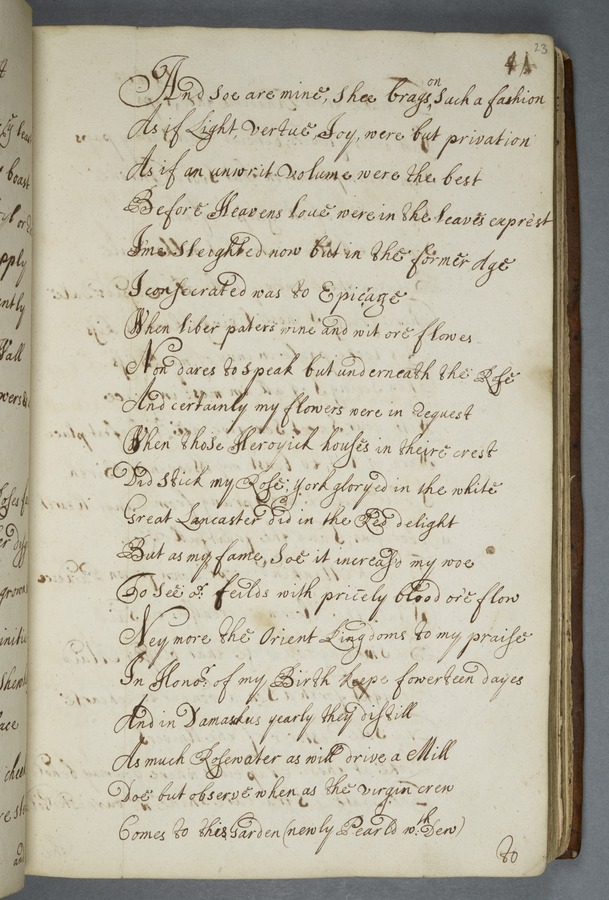 23
41
And soe are mine, shee brags, on such a fashion
As if Light, Vertue, Joy, were but privation
As if an unwrit Volume were the best
Before Heavens loue were in the leaves exprest
I'me sleighted now but in the former Age
I consecrated was to Epicage
When liber paters wine and wit ore flowes
Non dares to speak but underneath the Rose
And certainly my flowers were in request
When those Heroyick houses in theire crest
Did stick my Rose; york gloryed in the white
Great Lancaster did in the Red delight
But as my fame, soe it increast my woe
To see or. feilds with pricely blood ore flow
Ney more the Orient Kingdoms to my praise
In Honor. of my Birth keepe fowerteen dayes
And in Damaskus yearly they distill
As much Rosewater as will drive a Mill
Doe but observe when as the virgin crew
Comes to this Garden (newly Pearld wth. Dew)
to